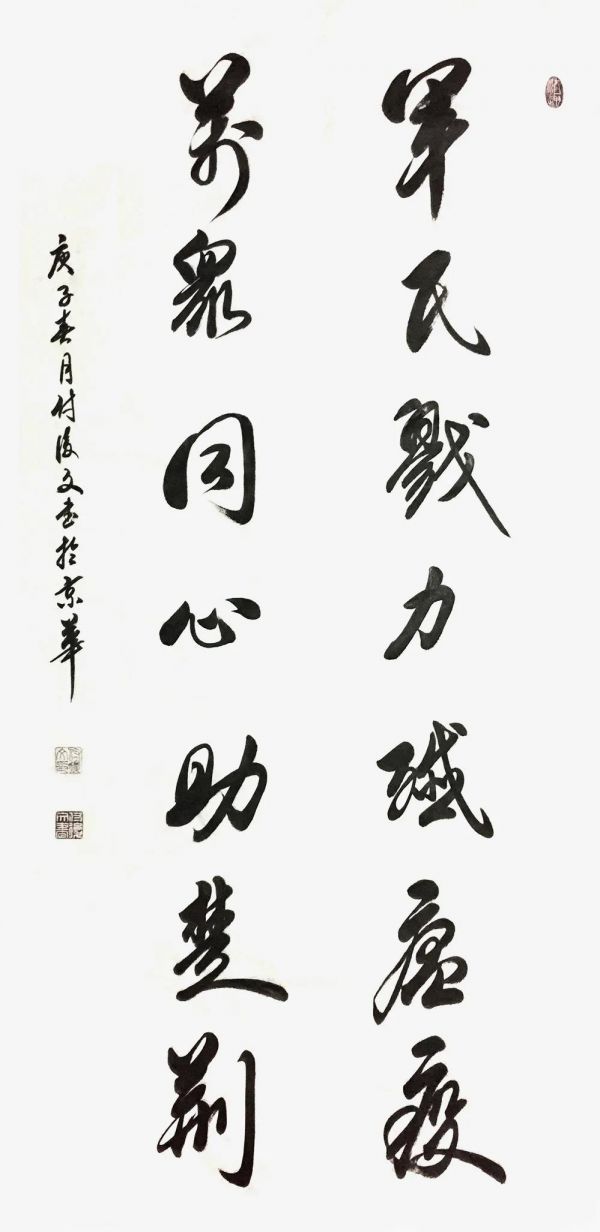 軍民戮力殲瘟疫
萬眾同心助楚荆
庚子春月付俊文书於京華